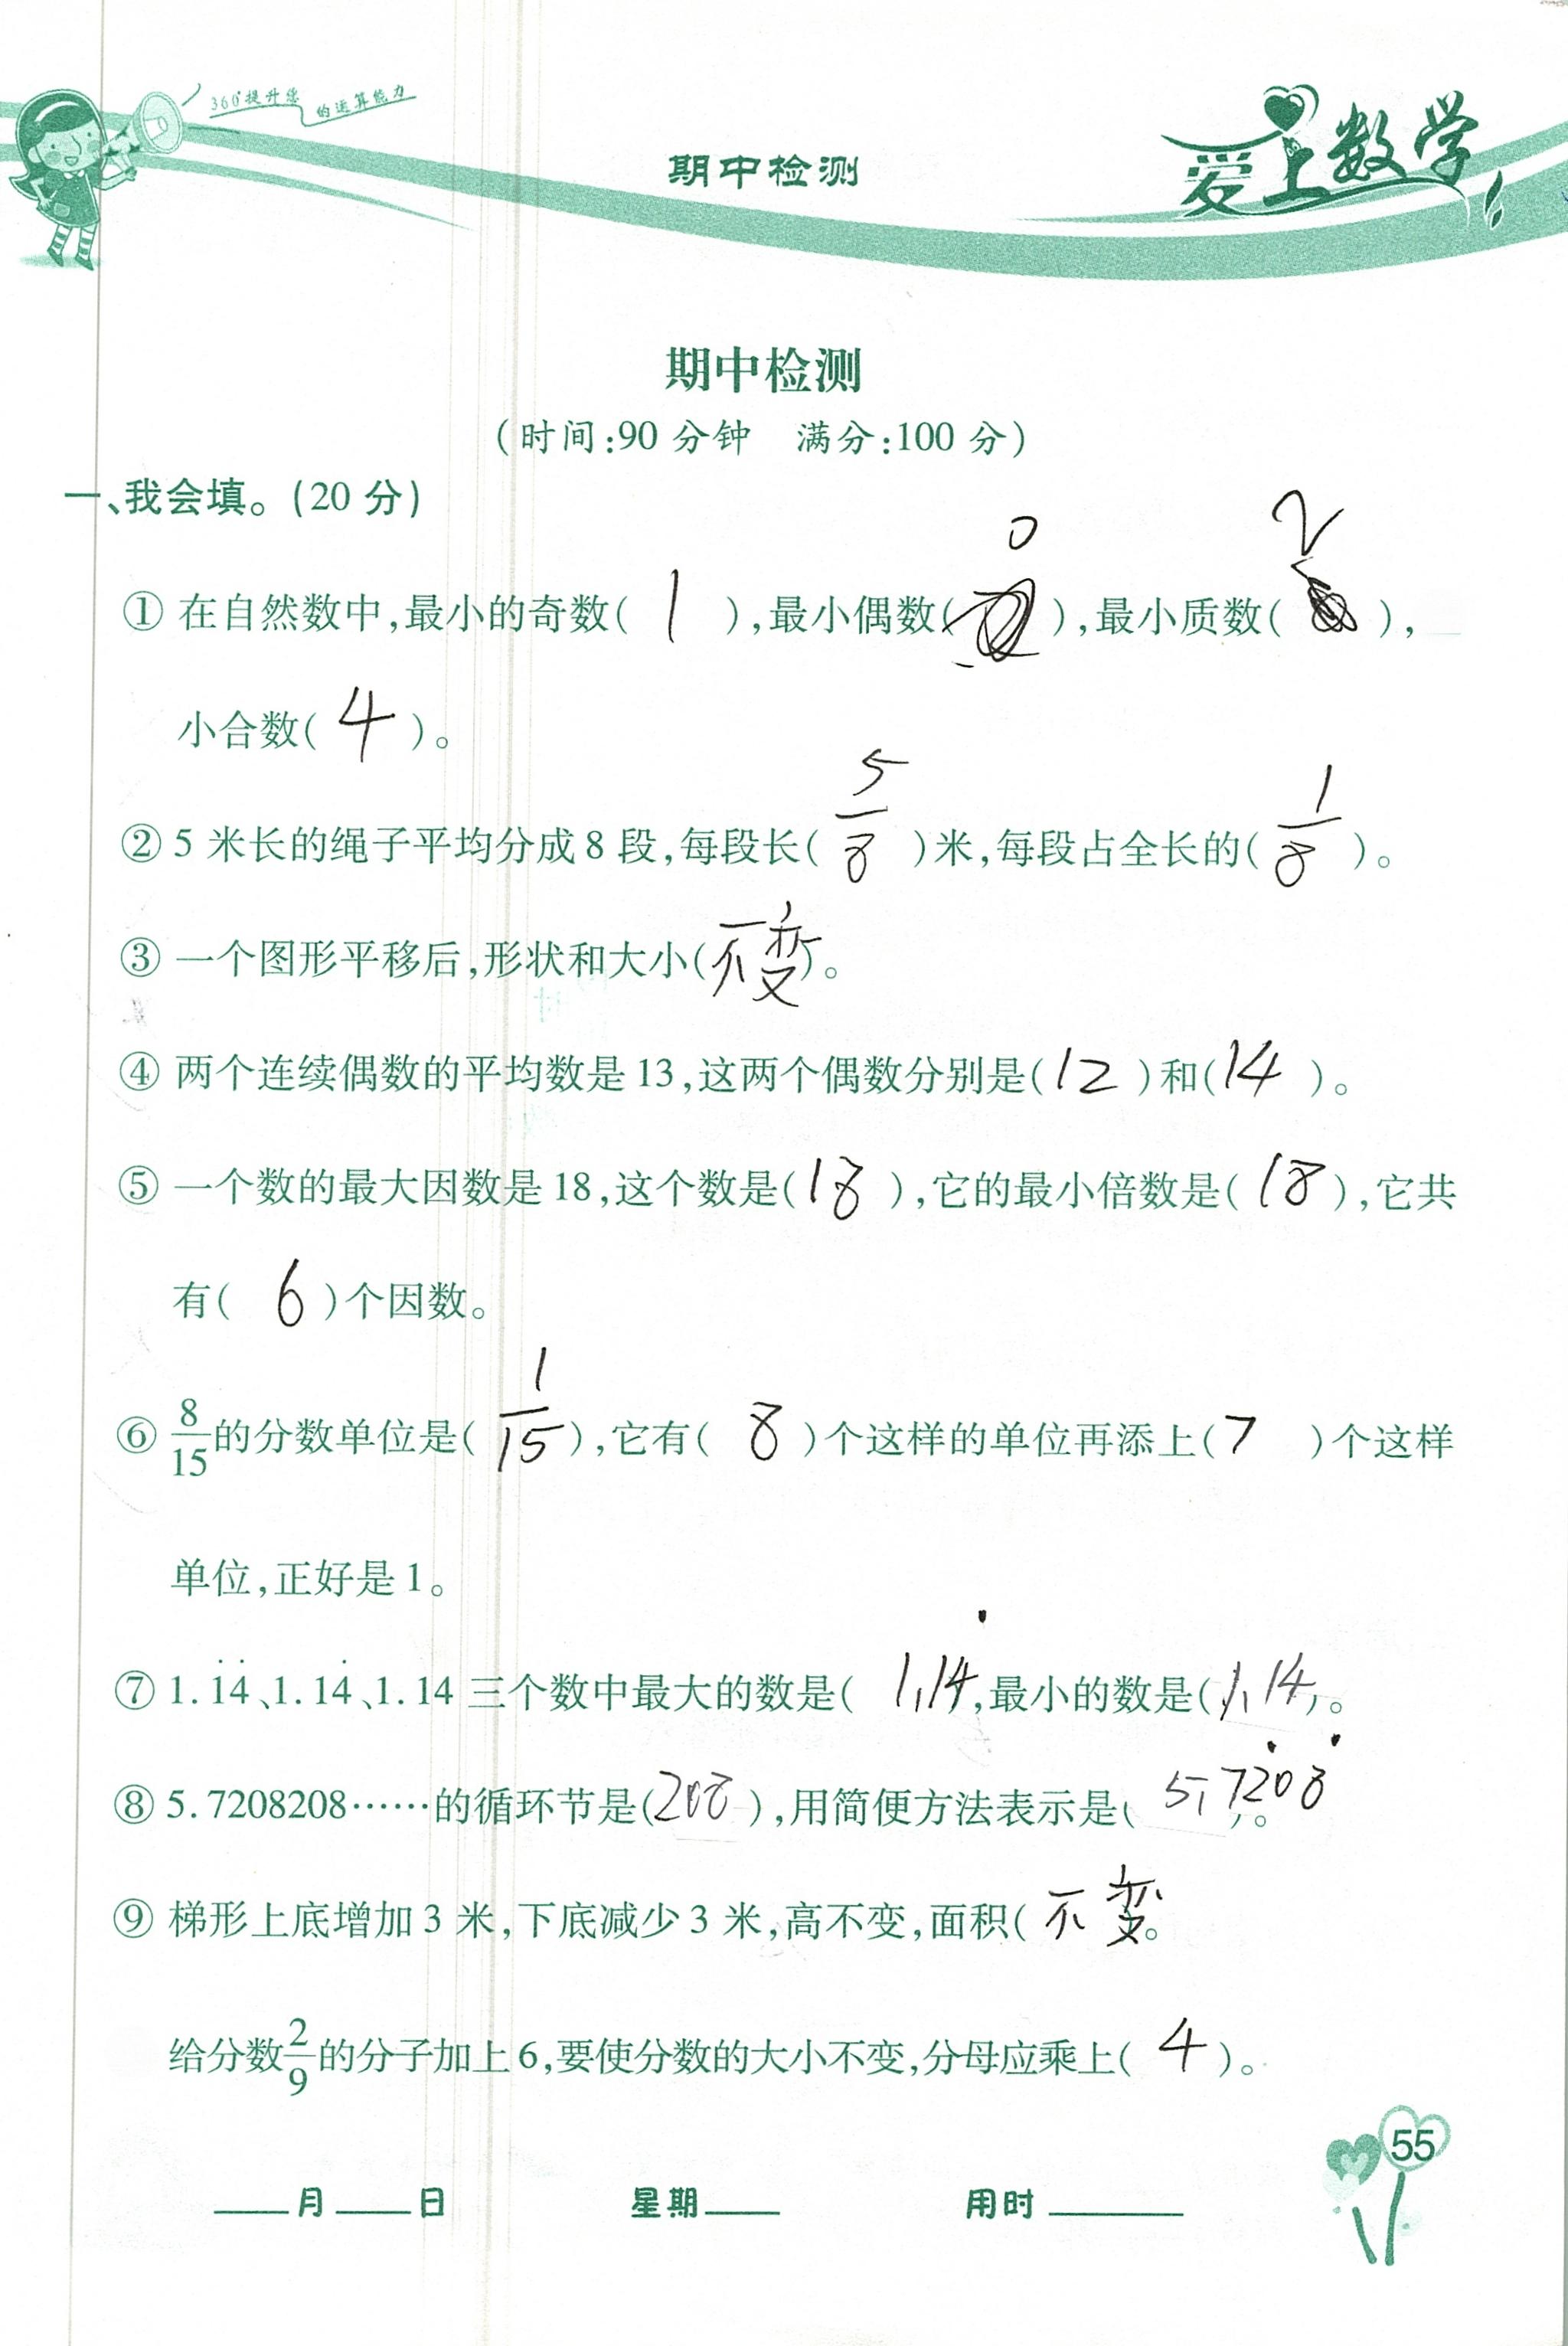 360°提升您的运算能力
期中检测
爱上数学
期中检测
(时间:90 分钟 满分:100 分)
一、我会填。(20 分)
① 在自然数中,最小的奇数( 1 ),最小偶数( 0 ),最小质数( 2 ),
小合数( 4 )。
② 5 米长的绳子平均分成 8 段,每段长( 5/8 )米,每段占全长的( 1/8 )。
③ 一个图形平移后,形状和大小(不变)。
④ 两个连续偶数的平均数是 13,这两个偶数分别是( 12 )和( 14 )。
⑤ 一个数的最大因数是 18,这个数是( 18 ),它的最小倍数是( 18 ),它共
有( 6 )个因数。
⑥ 8/15的分数单位是( 1/15 ),它有( 8 )个这样的单位再添上( 7 )个这样
单位,正好是 1。
⑦ 1.1̇4̇、1.14̇、1.14 三个数中最大的数是( 1.14̇,最小的数是( 1.14)。
⑧ 5.7208208……的循环节是(208 ),用简便方法表示是( 5.72̇08̇ )。
⑨ 梯形上底增加 3 米,下底减少 3 米,高不变,面积( 不变。
给分数2/9的分子加上 6,要使分数的大小不变,分母应乘上( 4 )。
____月____日 星期____ 用时______
55